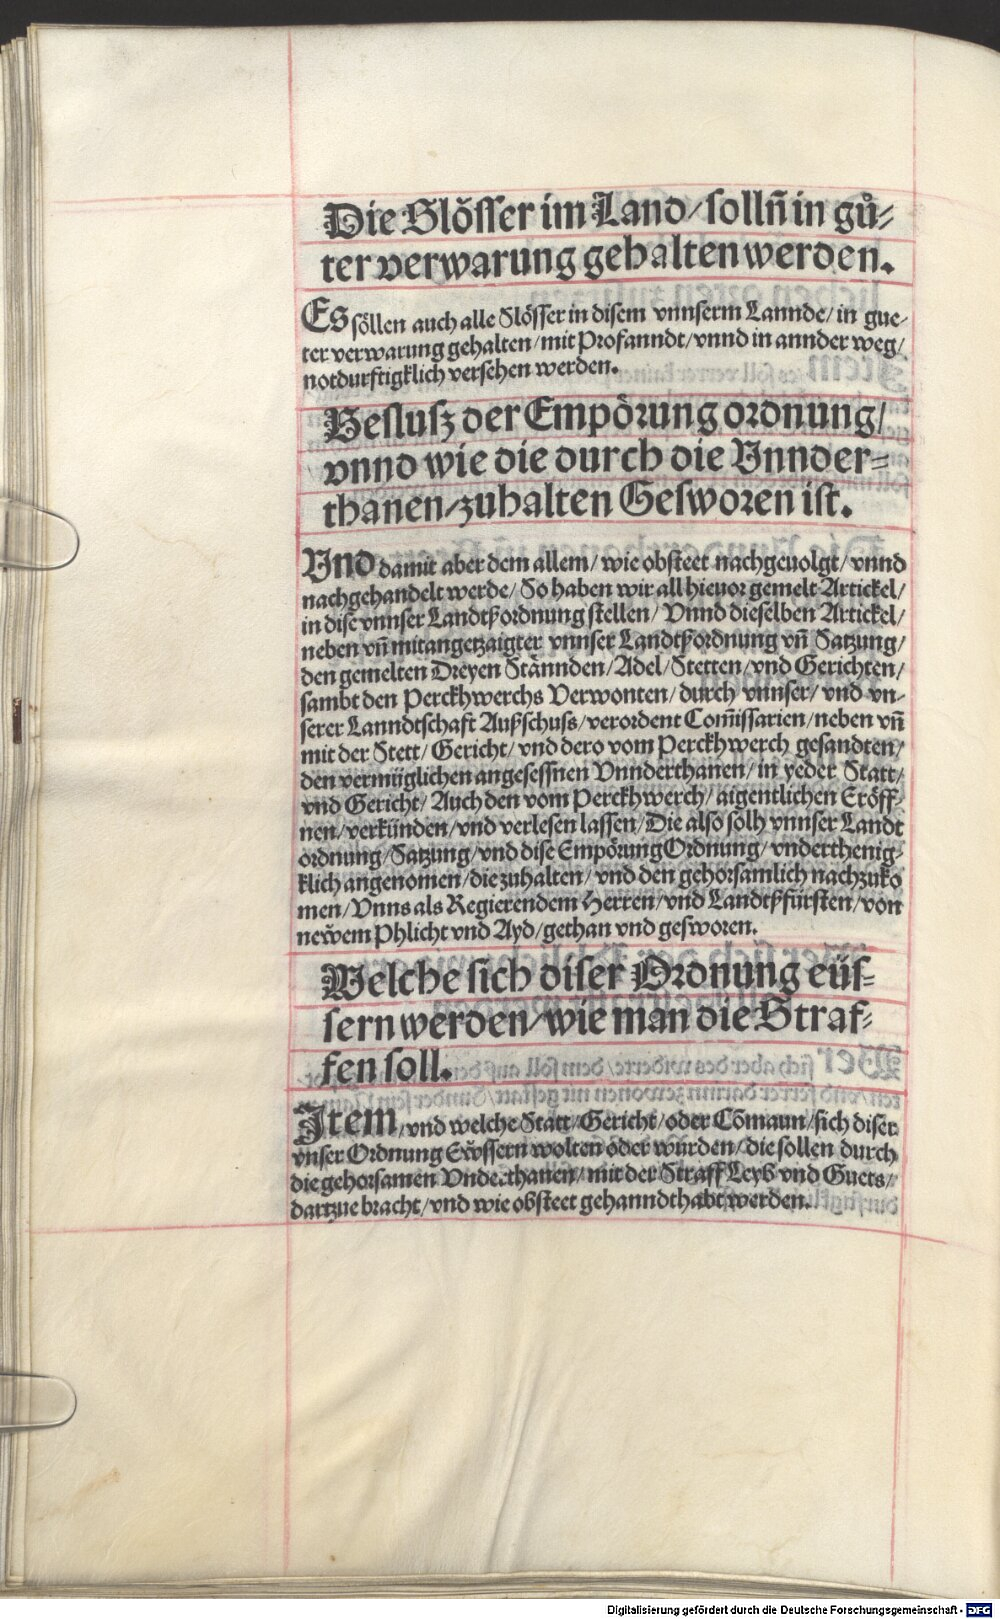 Die Slösser im Land/ solln̄ in gů-
ter verwarung gehalten werden.
Es söllen auch alle Slösser in disem vnnserm Lannde/ in gue-
ter verwarung gehalten/ mit Profanndt/ vnnd in annder weg/
notdurftigklich versehen werden.
Beslusz der Empörung ordnung/
vnnd wie die durch die Vnnder-
thanen/ zuhalten Gesworen ist.
Vnd damit aber dem allem/ wie obsteet nachgeuolgt/ vnnd
nachgehandelt werde/ So haben wir all hieuor gemelt Artickel/
in dise vnnser Landtßordnung stellen/ Vnnd dieselben Artickel/
neben vn̄ mitangetzaigter vnnser Landtßordnung vn̄ Satzung/
den gemelten Dreyen Stännden/ Adel/ Stetten/ vnd Gerichten/
sambt den Perckhwerchs Verwonten/ durch vnnser/ vnd vn-
serer Lanndtschaft Außschuss/ verordent Com̄issarien/ neben vn̄
mit der Stett/ Gericht/ vnd dero vom Perckhwerch gesandten/
den vermüglichen angesessnen Vnnderthanen/ in yeder Statt/
vnd Gericht/ Auch den vom Perckhwerch/ aigentlichen Eröff-
nen/ verkünden/ vnd verlesen lassen/ Die also solh vnnser Landt
ordnung/ Satzung/ vnd dise Empörung Ordnung/ vnderthenig-
klich angenomen/ die zuhalten/ vnd den gehorsamlich nachzuko
men/ Vnns als Regierendem Herren/ vnd Landtßfürsten/ von
neẅem Phlicht vnd Ayd/ gethan vnd gesworen.
Welche sich diser Ordnung eüs-
sern werden/ wie man die Straf-
fen soll.
Item/ vnd welche Statt/ Gericht/ oder Cōmaun/ sich diser
vnser Ordnung Eẅssern wolten oder würden/ die sollen durch
die gehorsamen Vnderthanen/ mit der Straff Leyb vnd Guets/
dartzue bracht/ vnd wie obsteet gehanndthabt werden.
Digitalisierung gefördert durch die Deutsche Forschungsgemeinschaft - DFG